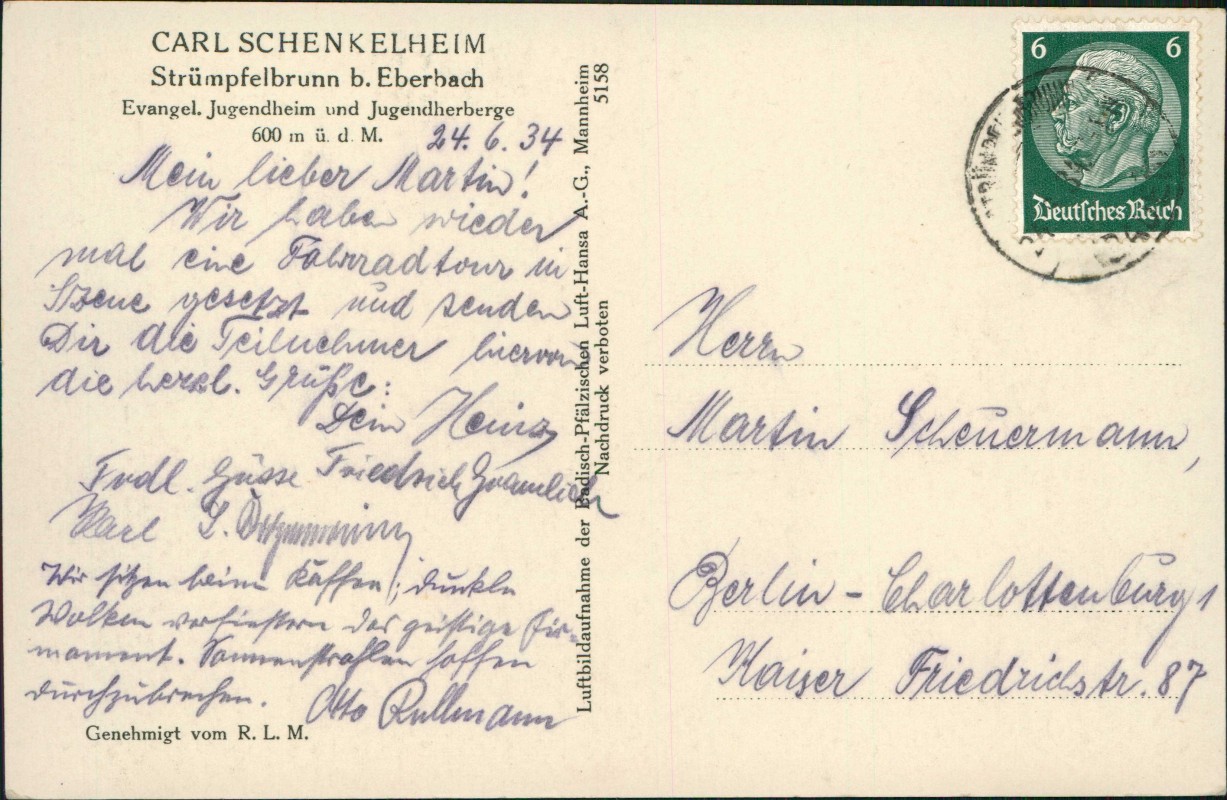 CARL SCHENKELHEIM
Strümpfelbrunn b. Eberbach
Evangel. Jugendheim und Jugendherberge
600 m ü. d. M.
24.6.34
Mein lieber Martin!
Wir haben wieder
mal eine Fahrradtour in
Szene gesetzt und senden
Dir die Teilnehmer hiervon
die herzl. Grüße:
Dein Heinz
Frdl. Grüsse Friedrich Gramlich
Karl
Wir sitzen beim Kaffee, dunkle
Wolken verfinstern das geistige Fir-
mament. Sonnenstrahlen hoffen
durchzubrechen.
Otto Rullmann
Genehmigt vom R. L. M.
Luftbildaufnahme der Badisch-Pfälzischen Luft-Hansa A.-G., Mannheim
Nachdruck verboten 5158
6 6
Deutsches Reich
Herrn
Martin Scheuermann,
Berlin-Charlottenburg 1
Kaiser Friedrichstr. 87